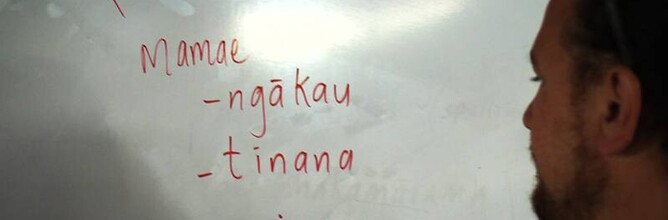 Mamae
- ngākau
- tinana